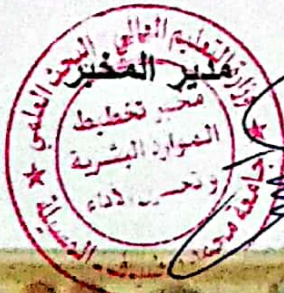 مدير المخبر
وزارة التعليم العالي و البحث العلمي
مخبر تخطيط
الموارد البشرية
و تحسين الأداء
جامعة محمد المسيلة